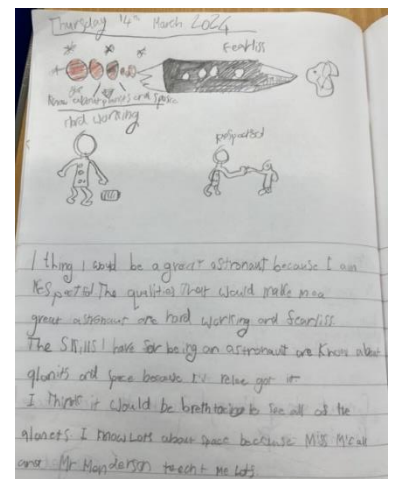 Thursday 14th March 2024
Fearliss
Know about planits and space
Hard working
Respected
I thing I would be a great astronaut because I am
respected The qualities That would make me a
great astronaut are hard working and fearliss
The Skills I have for being an astronaut are Know about
planits and space because I'v got it
I Think it would be brethtacing to see all of the
planets I know Lots about space because Miss M'call
and Mr Manderson teecht me Lots